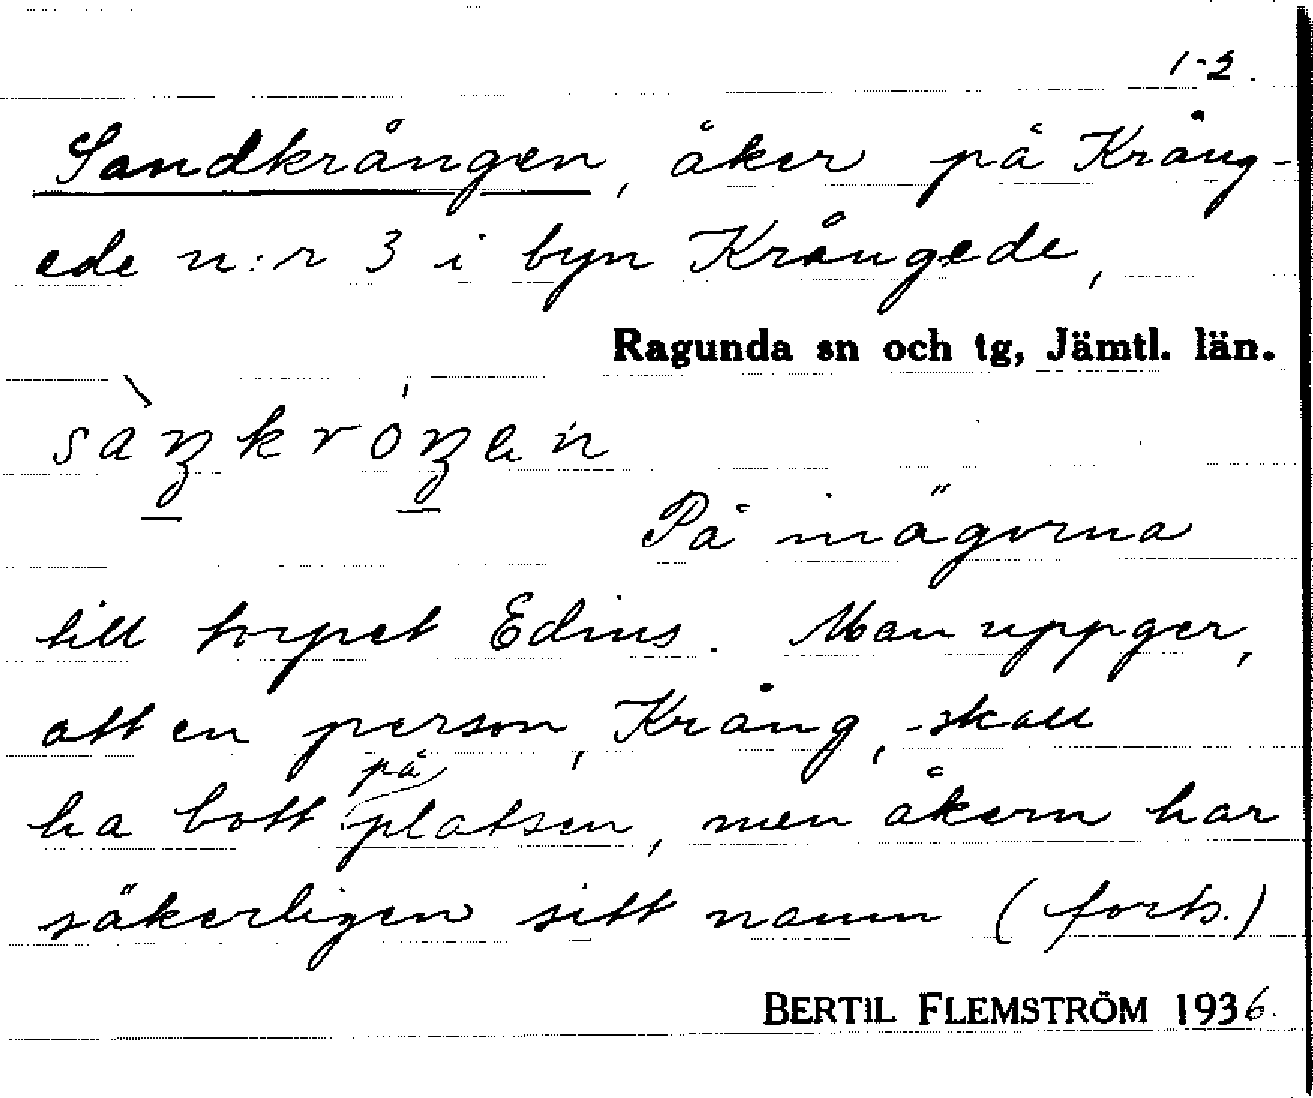 1-2.
Sandkrången, åker på Krång-
ede n:r 3 i byn Krångede,
Ragunda sn och tg, Jämtl. län.
På inägorna
till torpet Edins. Man uppger,
att en person, Krång, skall
ha bott på platsen, men åkern har
säkerligen sitt namn (forts.)
BERTIL FLEMSTRÖM 1936.